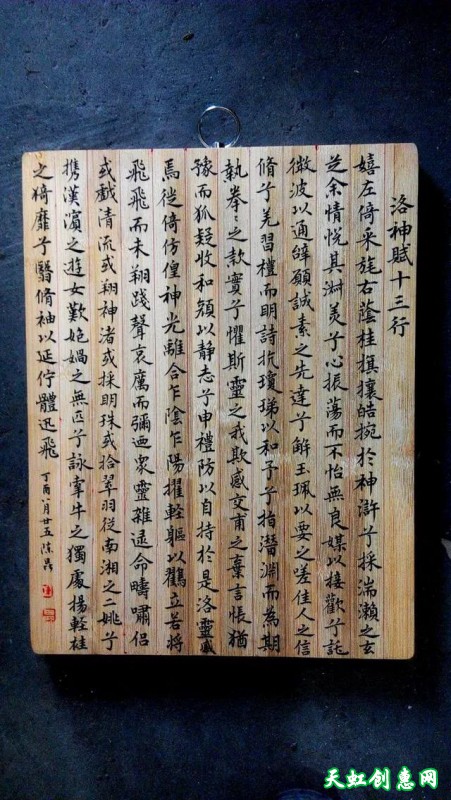 洛神賦十三行
嬉左倚采旄右蔭桂旗攘皓捥於神滸兮採湍瀨之玄
芝余情悅其淑美兮心振蕩而不怡無良媒以接歡兮託
微波以通辭願誠素之先達兮解玉珮以要之嗟佳人之信
脩兮羌習禮而明詩抗瓊珶以和予兮指潛淵而為期
執拳〻之款實兮懼斯靈之我欺感交甫之棄言悵猶
豫而狐疑收和顏以静志兮申禮防以自持於是洛靈感
焉徙倚仿偟神光離合乍陰乍陽擢輕軀以鶴立若將
飛飛而未翔踐聲哀厲而彌衆靈雜遝命疇嘯侣
或戲清流或翔神渚或採明珠或拾翠羽從南湘之二姚兮
携漢濱之遊女歎媧之無匹兮詠牽牛之獨處揚輕袿
之猗靡兮翳脩袖以延佇體迅飛
丁酉八月廿五陳
天虹创惠网